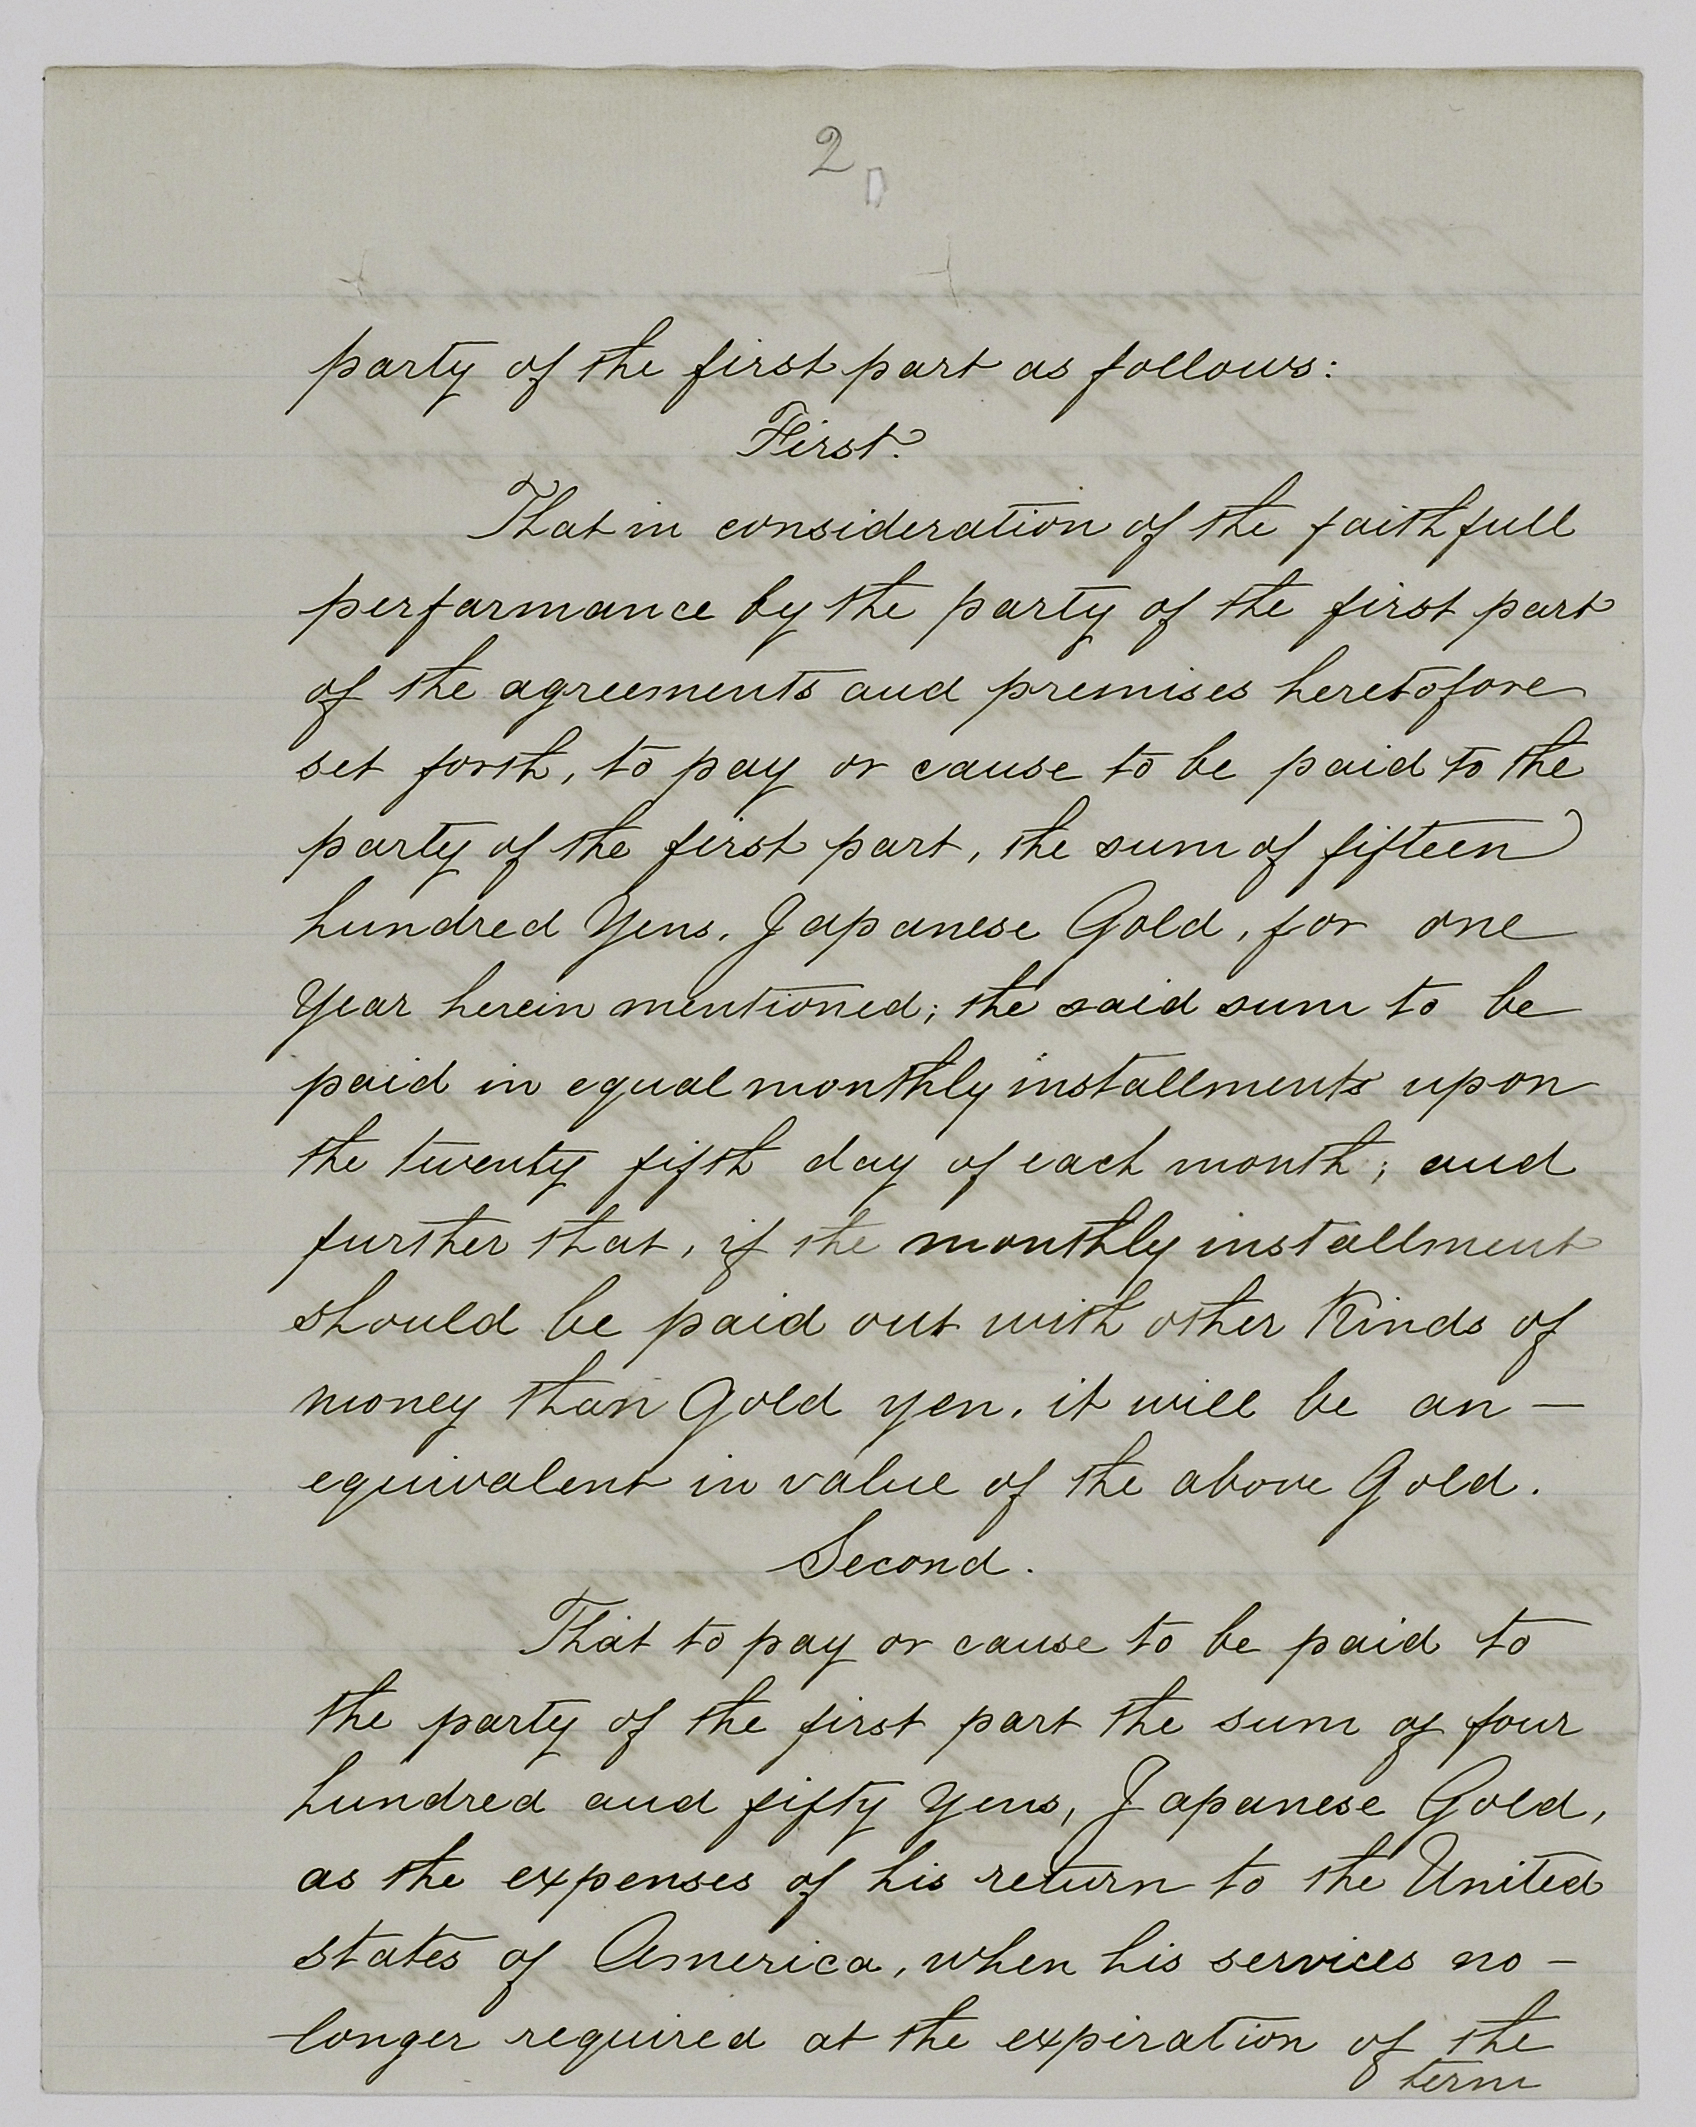 2
party of the first part as follows:
First.
That in consideration of the faithfull
performance by the party of the first part
of the agreements and premises heretofore
set forth, to pay or cause to be paid to the
party of the first part, the sum of fifteen
hundred Yens, Japanese Gold, for one
Year herein mentioned; the said sum to be
paid in equal monthly installments upon
the twenty fifth day of each month; and
further that, if the monthly installment
should be paid out with other Kinds of
money than Gold yen, it will be an —
equivalent in value of the above Gold.
Second.
That to pay or cause to be paid to
the party of the first part the sum of four
hundred and fifty Yens, Japanese Gold,
as the expenses of his return to the United
states of America, when his services no —
longer required at the expiration of the
term